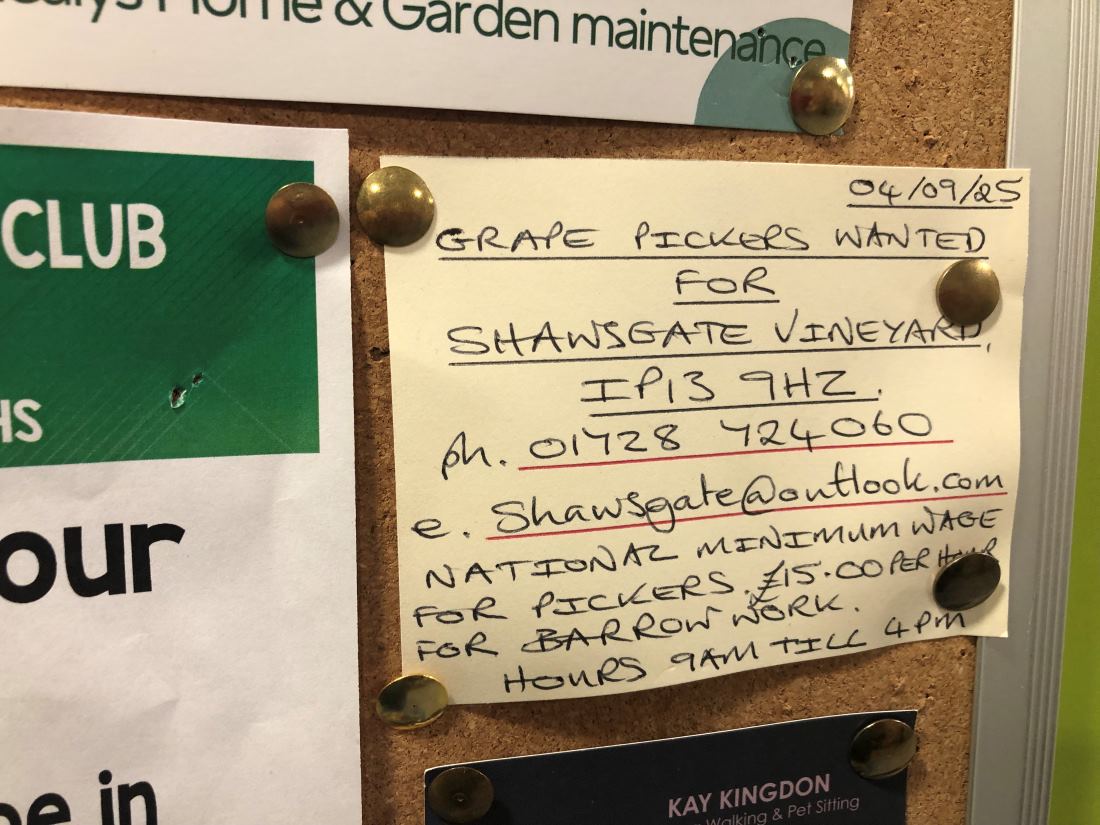 Home & Garden maintenance
CLUB
HS
our
be in
04/09/25
GRAPE PICKERS WANTED
FOR
SHAWSGATE VINEYARD,
IP13 9HZ.
ph. 01728 724060
e. Shawsgate@outlook.com
NATIONAL MINIMUM WAGE
FOR PICKERS. £15.00 PER HOUR
FOR BARROW WORK.
HOURS 9AM TILL 4PM
KAY KINGDON
Walking & Pet Sitting